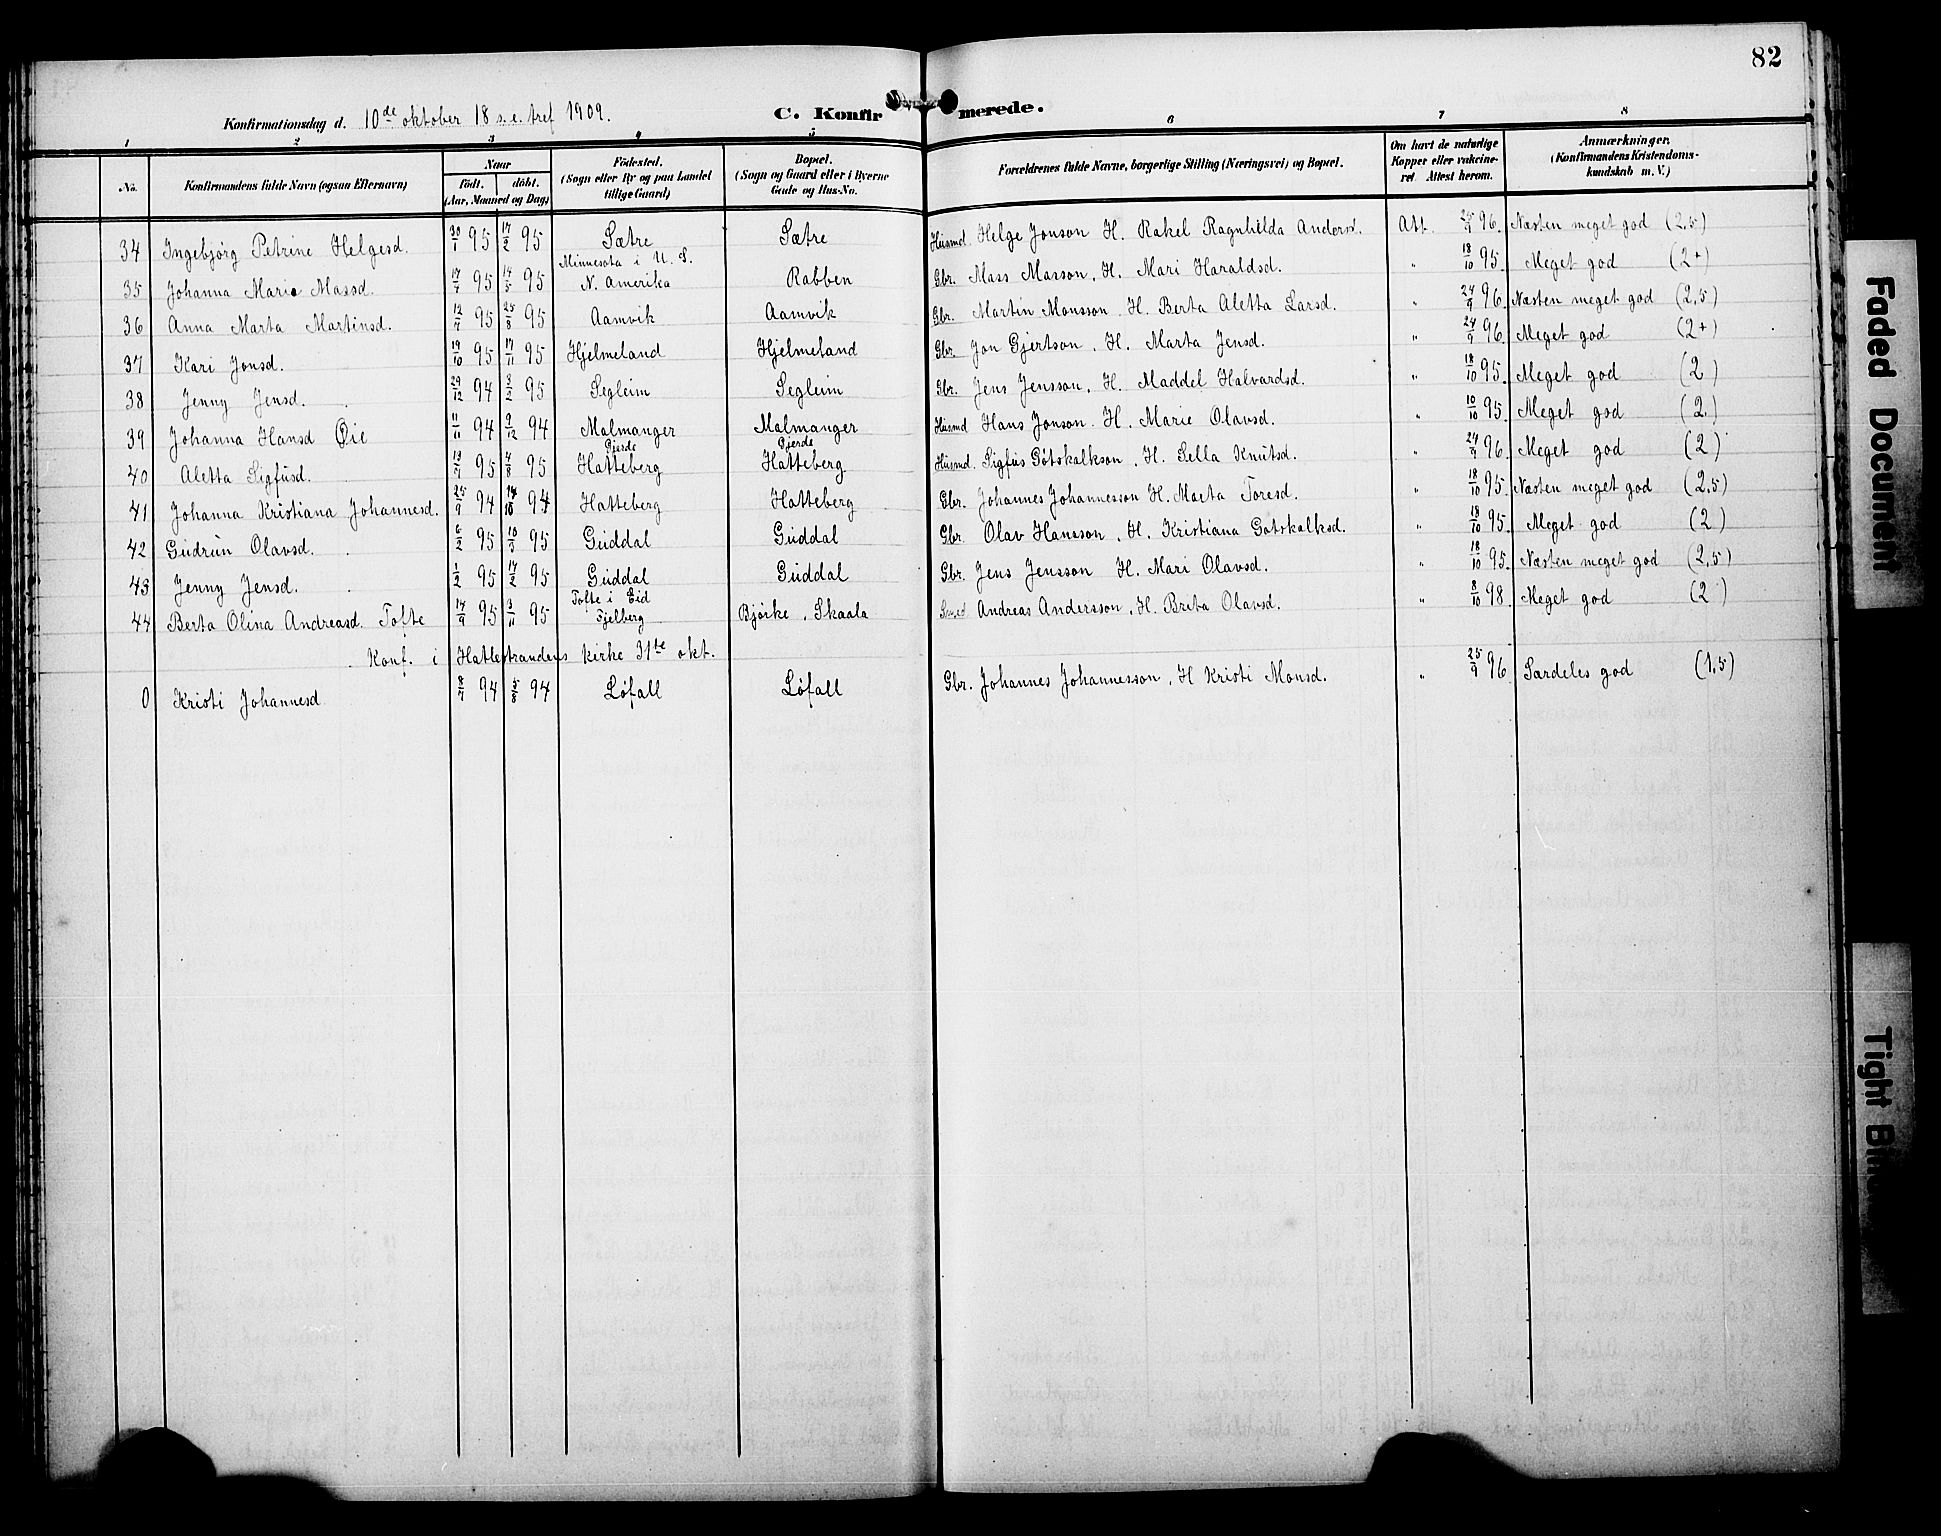 82
Konfirmationsdag d. 10de oktober 18 s. e. tref 1909. C. Konfirmerede.
1 2 3 4 5 6 7 8
No. Konfirmandens fulde Navn (ogsaa Efternavn) Naar födt. döbt. (Aar, Maaned og Dag) Födested. (Sogn eller By og paa Landet tillige Gaard) Bopæl. (Sogn og Gaard eller i Byerne Gade og Hus-No. Forældrenes fulde Navne, borgerlige Stilling (Næringsvei) og Bopæl. Om havt de naturlige Kopper eller vakcineret Attest herom. Anmærkninger. (Konfirmandens Kristendomskundskab m. V.)
34 Ingebjörg Petrine Helgesd. 30/1 95 17/2 95 Sætre Sætre Husmd Helge Jonson H. Rakel Ragnhilda Andersd. Att. 25/9 96. Næsten meget god (2,5)
35 Johanna Marie Massd. 17/4 95 14/5 95 Minnesota i U. S. N. Amerika Rabben Gbr. Mass Masson, H. Mari Haraldsd. " 18/10 95. Meget god (2+)
36 Anna Marta Martinsd. 12/7 95 25/8 95 Aamvik Aamvik Gbr. Martin Monsson, H. Berta Aletta Larsd. " 24/9 96. Næsten meget god (2,5)
37 Kari Jonsd. 19/10 95 17/11 95 Hjelmeland Hjelmeland Gbr. Jon Gjertson, H. Marta Jensd. " 24/9 96. Meget god (2+)
38 Jenny Jensd. 29/12 94 3/2 95 Segleim Segleim Gbr. Jens Jensson, H. Maddel Halvardsd. " 18/10 95. Meget god (2)
39 Johanna Hansd Øie 11/11 94 9/12 94 Malmanger Malmanger Husmd Hans Jonson. H. Marie Olavsd. " 10/10 95. Meget god (2.)
40 Aletta Sigfusd. 13/7 95 4/8 95 Gjerde Hatteberg Gjerde Hatteberg Husmd. Sigfus Götskalkson, H. Sella Knutsd. " 24/9 96. Meget god (2)
41 Johanna Kristiana Johannesd. 25/9 94 14/10 94 Hatteberg Hatteberg Gbr. Johannes Johannesson H. Marta Toresd. " 18/10 95. Næsten meget god (2,5)
42 Gudrun Olavsd. 6/2 95 10/3 95 Guddal Guddal Gbr. Olav Hansson, H. Kristiana Gotskalksd. " 18/10 95. Meget god (2)
43 Jenny Jensd. 1/2 95 17/2 95 Guddal Guddal Gbr. Jens Jensson H. Mari Olavsd. " 18/10 95. Næsten meget god (2,5)
44 Berta Olina Andreasd. Tofte 14/9 95 3/11 95 Tofte i Eid Fjelberg Bjørke, Skaala Smed Andreas Andersson, H. Brita Olavsd. " 8/10 98. Meget god (2)
Konf. i Hatlestrandens kirke 31te okt.
0 Kristi Johannesd 8/7 94 5/8 94 Løfall Løfall Gbr. Johannes Johannesson, H Kristi Monsd. " 25/9 96 Særdeles god (1,5)
Faded Document
Tight